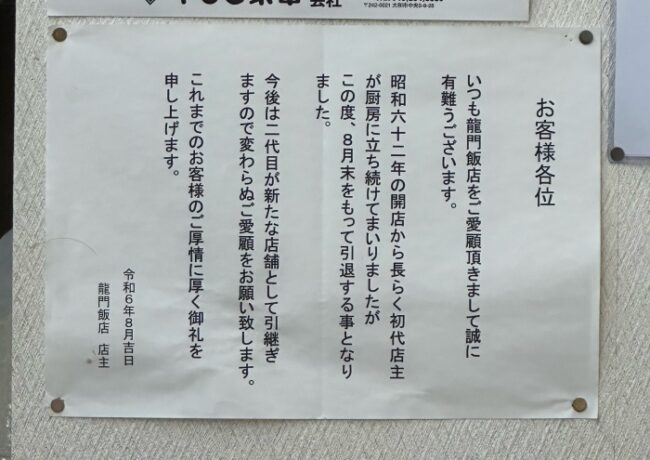 会社
〒242-0021 大和市中央3-8-25
お客様各位
いつも龍門飯店をご愛顧頂きまして誠に
有難うございます。
昭和六十二年の開店から長らく初代店主
が厨房に立ち続けてまいりましたが
この度、8月末をもって引退する事となり
ました。
今後は二代目が新たな店舗として引継ぎ
ますので変わらぬご愛顧をお願い致します。
これまでのお客様のご厚情に厚く御礼を
申し上げます。
令和6年8月吉日
龍門飯店 店主